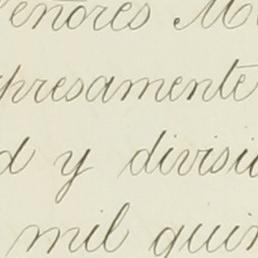 eñores M
presamente
d y divisi
mil quin